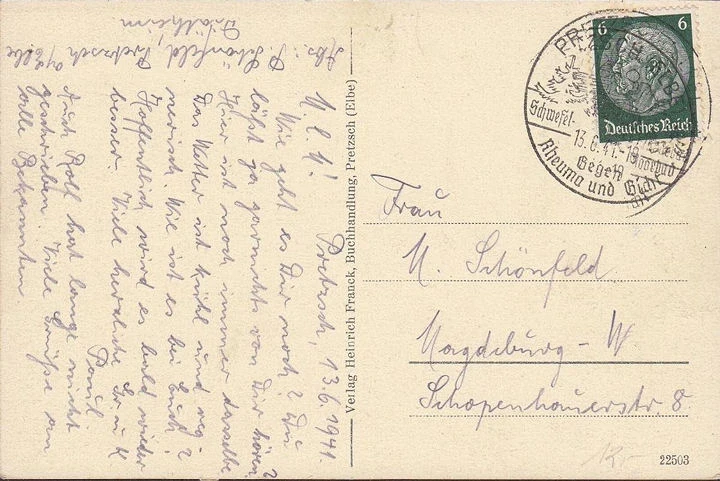 Abs.: P. Schönfeld, Pretzsch a/Elbe
Pretzsch, 13.6.1941.
M. l. M!
Wie geht es Dir noch? Du
läßt ja garnichts von Dir hören?
Hier ist noch immer dasselbe
Das Wetter ist kühl und reg-
nerisch. Wie ist es bei Euch?
Hoffentlich wird es bald wieder
besser. Viele herzliche Gr. u. K.
Paul.
Auch Rolf hat lange nicht
geschrieben. Viele Grüße an
alle Bekannten.
Verlag Heinrich Franck, Buchhandlung, Pretzsch (Elbe)
6 6
Deutsches Reich
PRETZSCH
Schwefel-
13.6.41.-19
Gegen
Rheuma und Gicht
Frau
M. Schönfeld
Magdeburg-W.
Schopenhauerstr. 8
22503